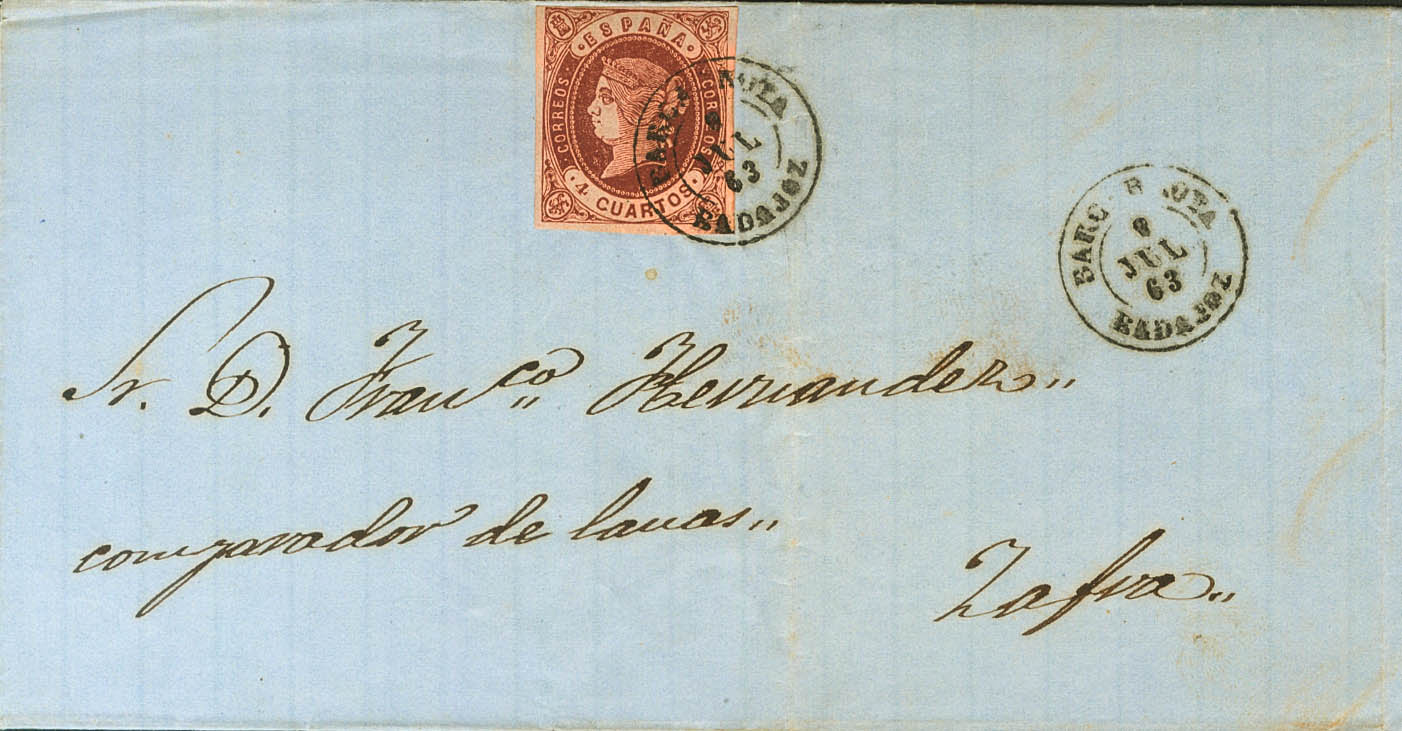 · ESPAÑA ·
CORREOS · CORREOS
· 4 CUARTOS ·
JUL
63
BADAJOZ
JUL
63
BADAJOZ
Sr. D. Franco Hernandez
comprador de lanas
Zafra